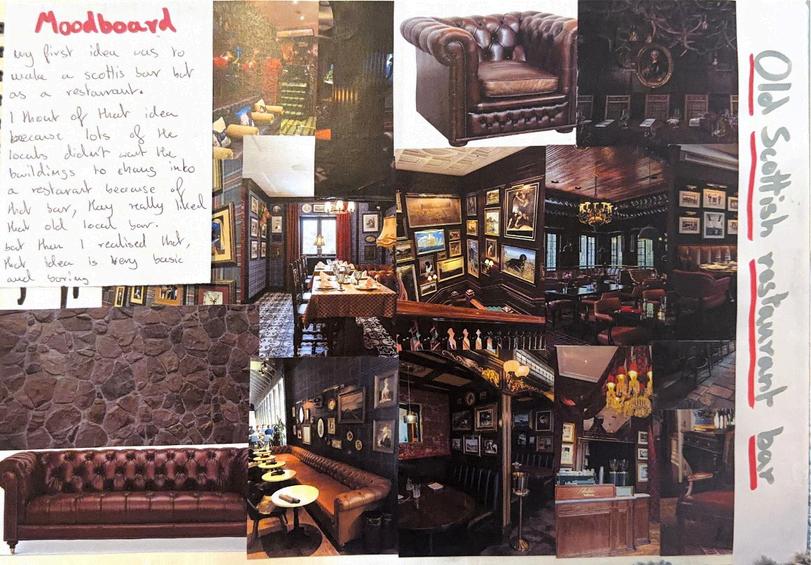 Moodboard
my first idea was to
make a scottis bar but
as a restaurant.
I thout of that idea
because lots of the
locals diden't want the
buildings to chang into
a restarant because of
that bar, they really liked
that old local bar.
but then I realised that,
that idea is very basic
and boring
Old Scottish restaurant bar